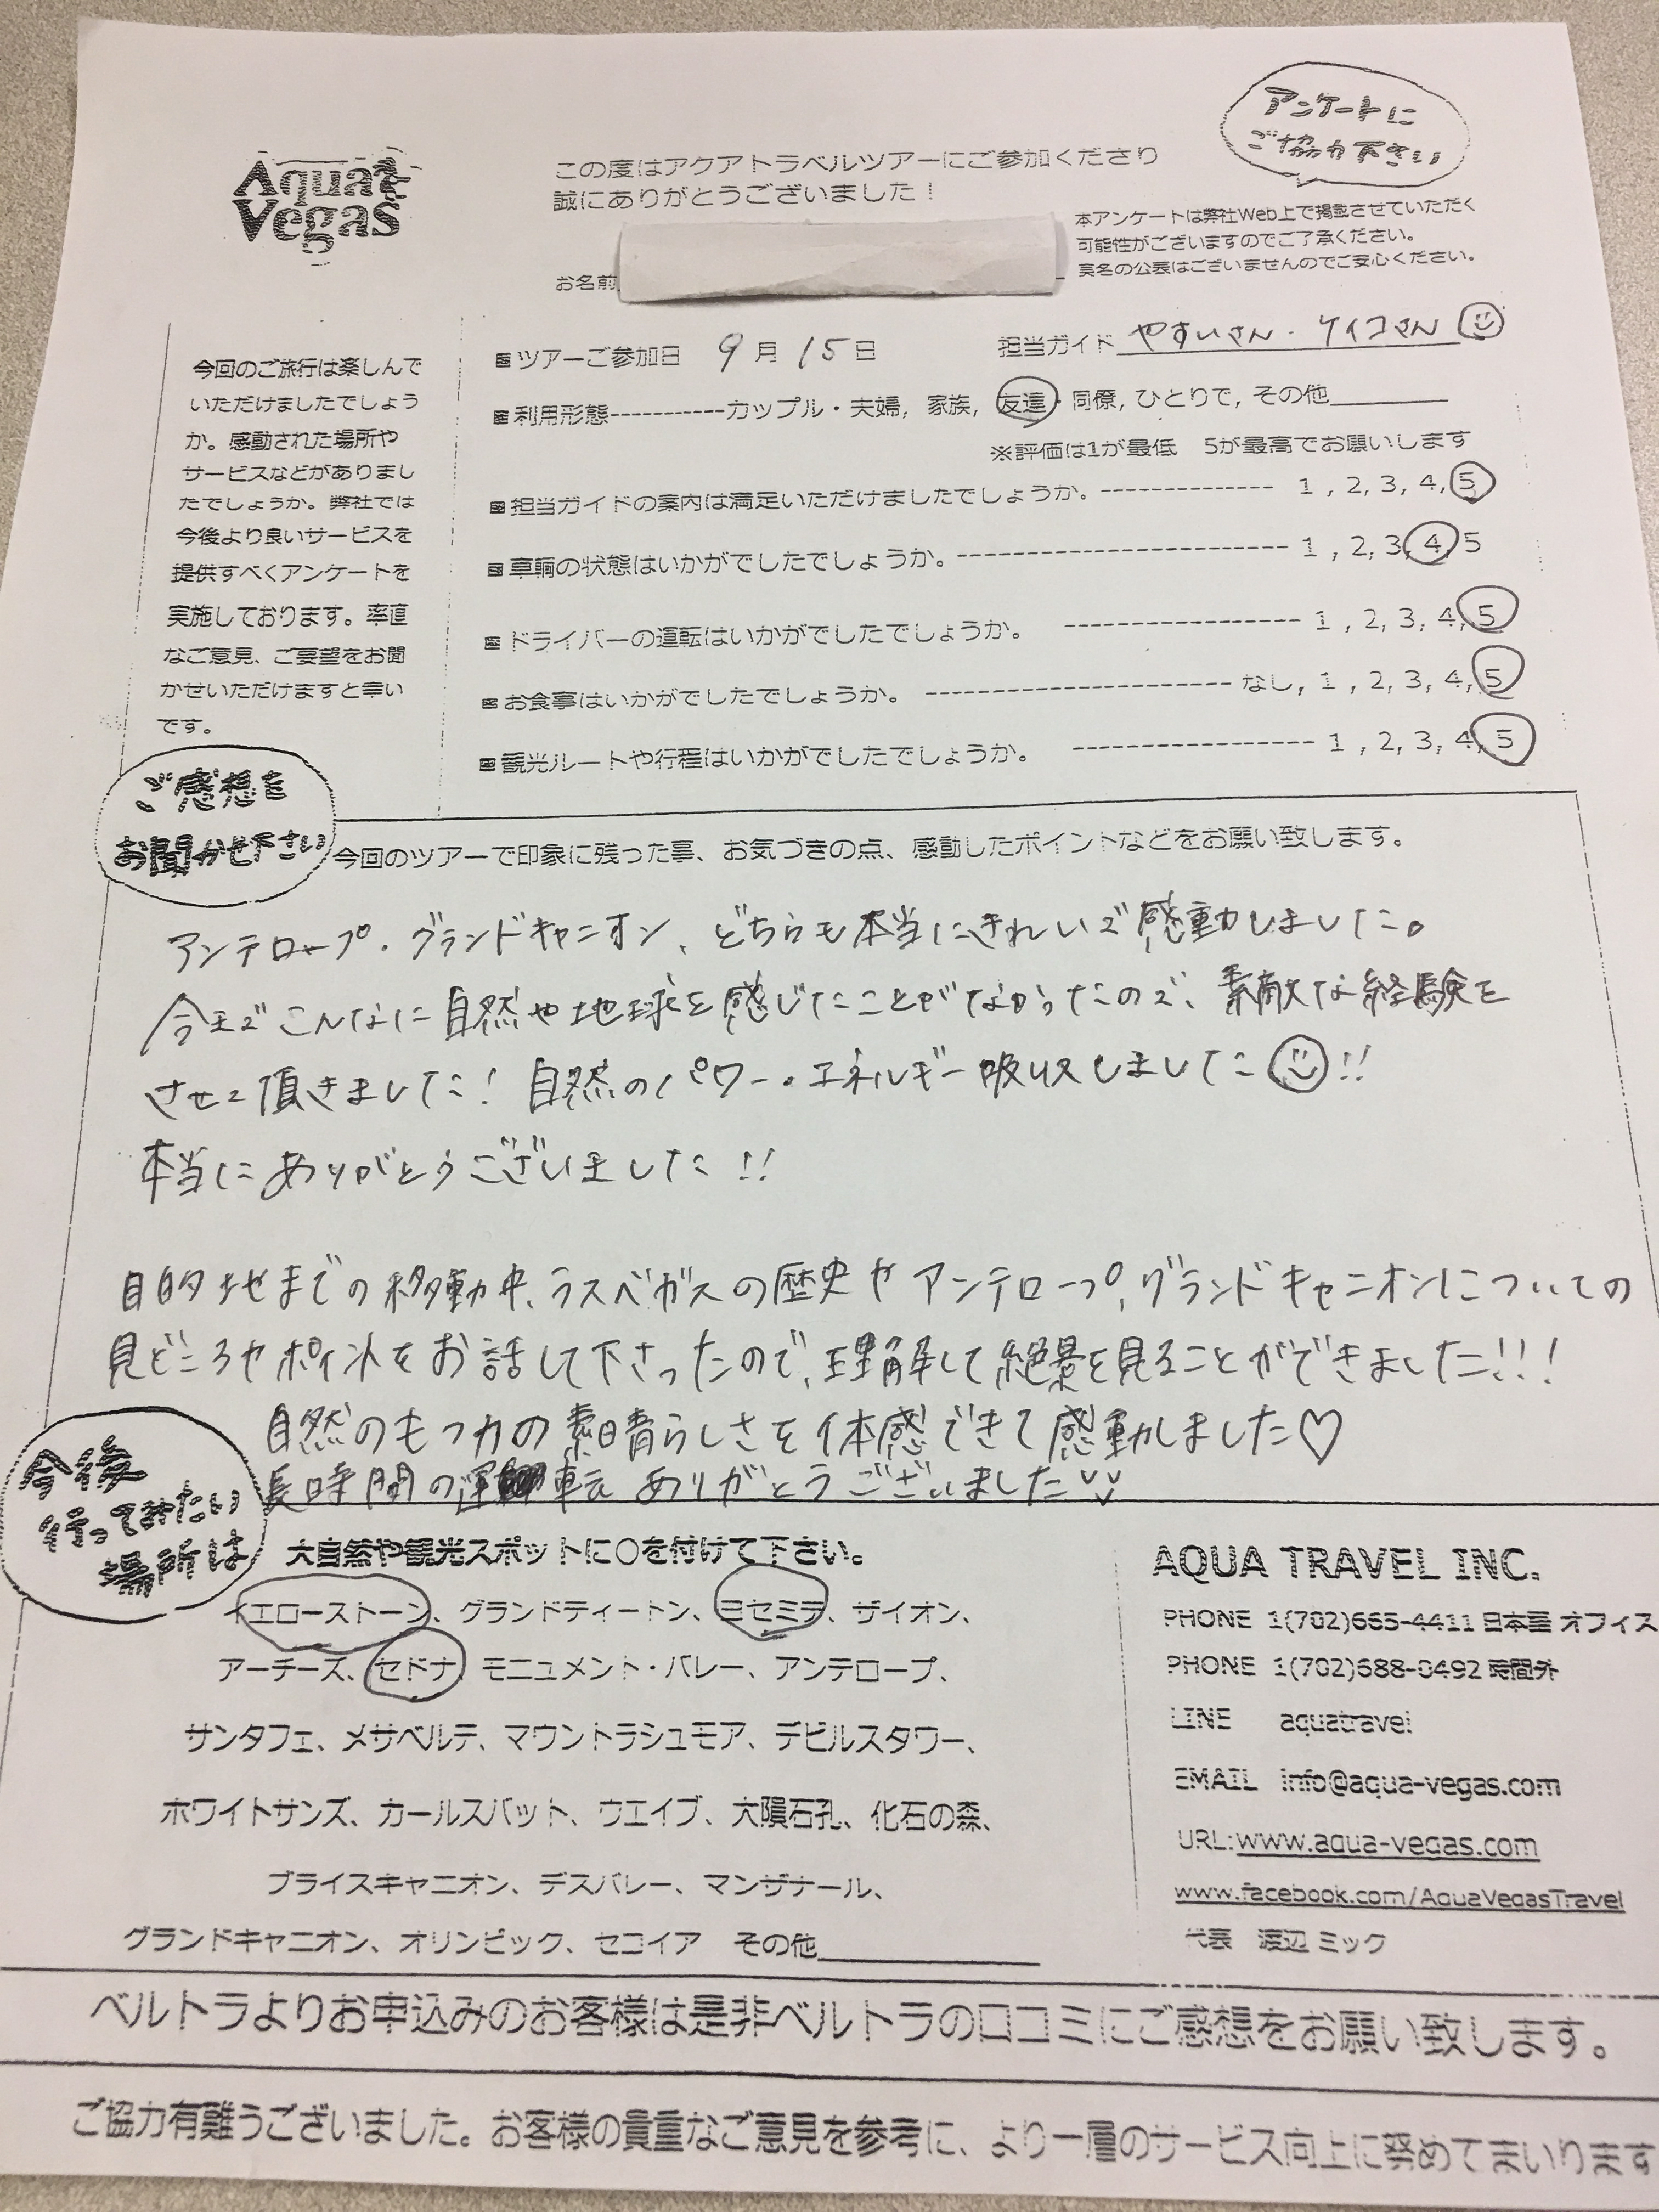 アンケートに
ご協力下さい
Aqua
Vegas
この度はアクアトラベルツアーにご参加くださり
誠にありがとうございました！
本アンケートは弊社Web上で掲載させていただく
可能性がございますのでご了承ください。
実名の公表はございませんのでご安心ください。
お名前
今回のご旅行は楽しんで
いただけましたでしょう
か。感動された場所や
サービスなどがありまし
たでしょうか。弊社では
今後より良いサービスを
提供すべくアンケートを
実施しております。率直
なご意見、ご要望をお聞
かせいただけますと幸い
です。
■ツアーご参加日 9月15日 担当ガイド やすいさん・ケイコさん
■利用形態-----------カップル・夫婦, 家族, 友達・同僚, ひとりで, その他
※評価は1が最低 5が最高でお願いします
■担当ガイドの案内は満足いただけましたでしょうか。-------------- 1 , 2, 3, 4, 5
■車輌の状態はいかがでしたでしょうか。--------------------------- 1 , 2, 3, 4, 5
■ドライバーの運転はいかがでしたでしょうか。 ------------------- 1 , 2, 3, 4, 5
■お食事はいかがでしたでしょうか。 ------------------------- なし, 1 , 2, 3, 4, 5
■観光ルートや行程はいかがでしたでしょうか。 ------------------- 1 , 2, 3, 4, 5
ご感想を
お聞かせ下さい
今回のツアーで印象に残った事、お気づきの点、感動したポイントなどをお願い致します。
アンテロープ・グランドキャニオン、どちらも本当にきれいで感動しました。
今までこんなに自然や地球を感じたことがなかったので、素敵な経験を
させて頂きました！自然のパワー・エネルギー吸収しました!!
本当にありがとうございました!!
目的地までの移動中、ラスベガスの歴史やアンテロープ、グランドキャニオンについての
見どころやポイントをお話して下さったので、理解して絶景を見ることができました!!!
自然のもつ力の素晴らしさを体感できて感動しました♡
長時間の運転ありがとうございました
今後
行ってみたい
場所は
大自然や観光スポットに○を付けて下さい。
イエローストーン、グランドティートン、ヨセミテ、ザイオン、
アーチーズ、セドナ、モニュメント・バレー、アンテロープ、
サンタフェ、メサベルデ、マウントラシュモア、デビルスタワー、
ホワイトサンズ、カールスバット、ウエイブ、大隕石孔、化石の森、
ブライスキャニオン、デスバレー、マンザナール、
グランドキャニオン、オリンピック、セコイア その他
AQUA TRAVEL INC.
PHONE 1(702)665-4411 日本語 オフィス
PHONE 1(702)688-0492 時間外
LINE aquatravel
EMAIL info@aqua-vegas.com
URL:www.aqua-vegas.com
www.facebook.com/AquaVegasTravel
代表 渡辺 ミック
ベルトラよりお申込みのお客様は是非ベルトラの口コミにご感想をお願い致します。
ご協力有難うございました。お客様の貴重なご意見を参考に、より一層のサービス向上に努めてまいります